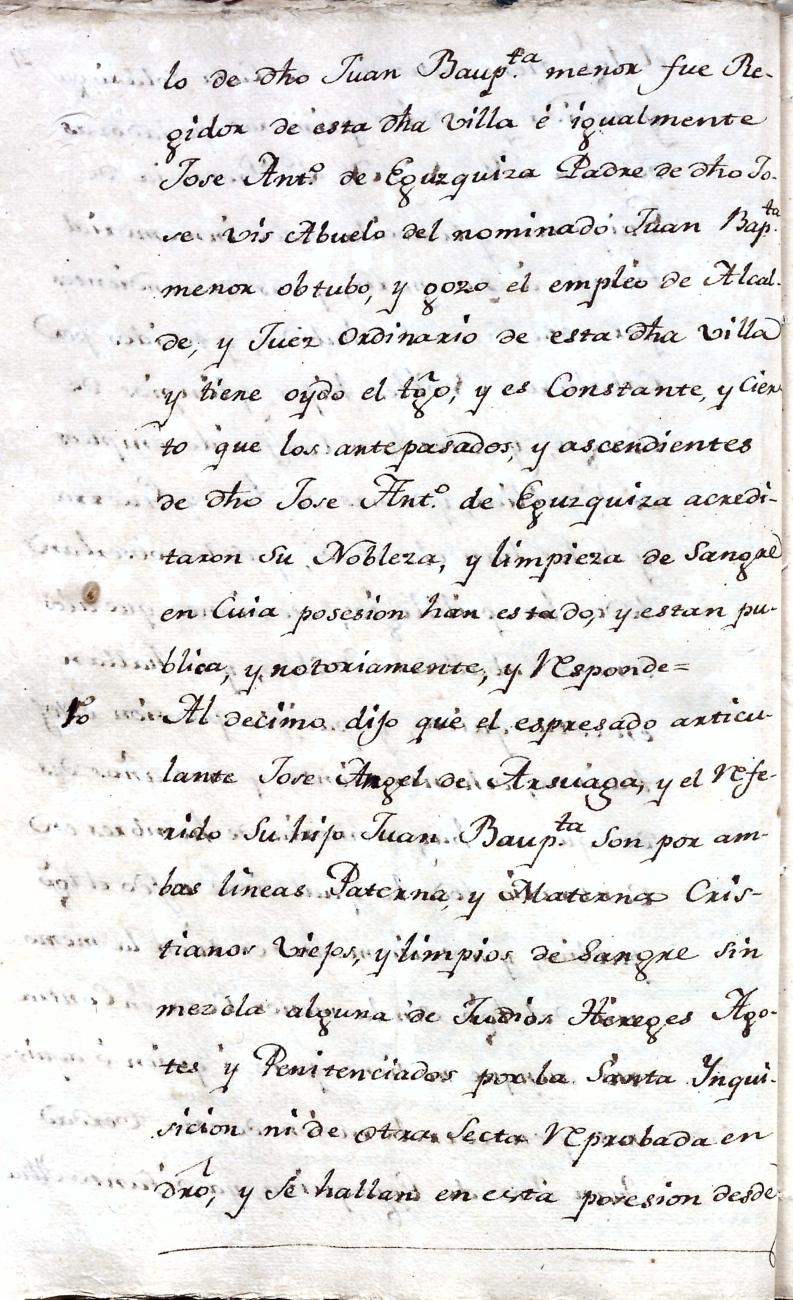 lo de dho Juan Baup.ta menor fue Re-
gidor de esta dha villa é igualmente
Jose Ant.o de Eguzquiza Padre de dho Jo-
se vis Abuelo del nominado Juan Bap.ta
menor obtubo, y gozo el empleo de Alcal-
de, y Juez Ordinario de esta dha villa
y tiene oydo el tgõ, y es Constante, y Cier-
to que los antepasados, y ascendientes
de dho Jose Ant.o de Eguzquiza acredi-
taron su Nobleza, y limpieza de Sangre
en Cuia posesion han estado, y estan pu-
blica, y notoriamente, y Responde=
10 Al decimo dijo que el espresado articu-
lante Jose Angel de Arsuaga, y el Refe-
rido Su hijo Juan Baup.ta Son por am-
bas lineas Paterna, y Materna Cris-
tianos Viejos, y limpios de Sangre sin
mezcla alguna de Judios Hereges Ago-
tes y Penitenciados por la Santa Ynqui-
sicion ni de otra Secta Reprobada en
drõ, y se hallan en esta posesion desde